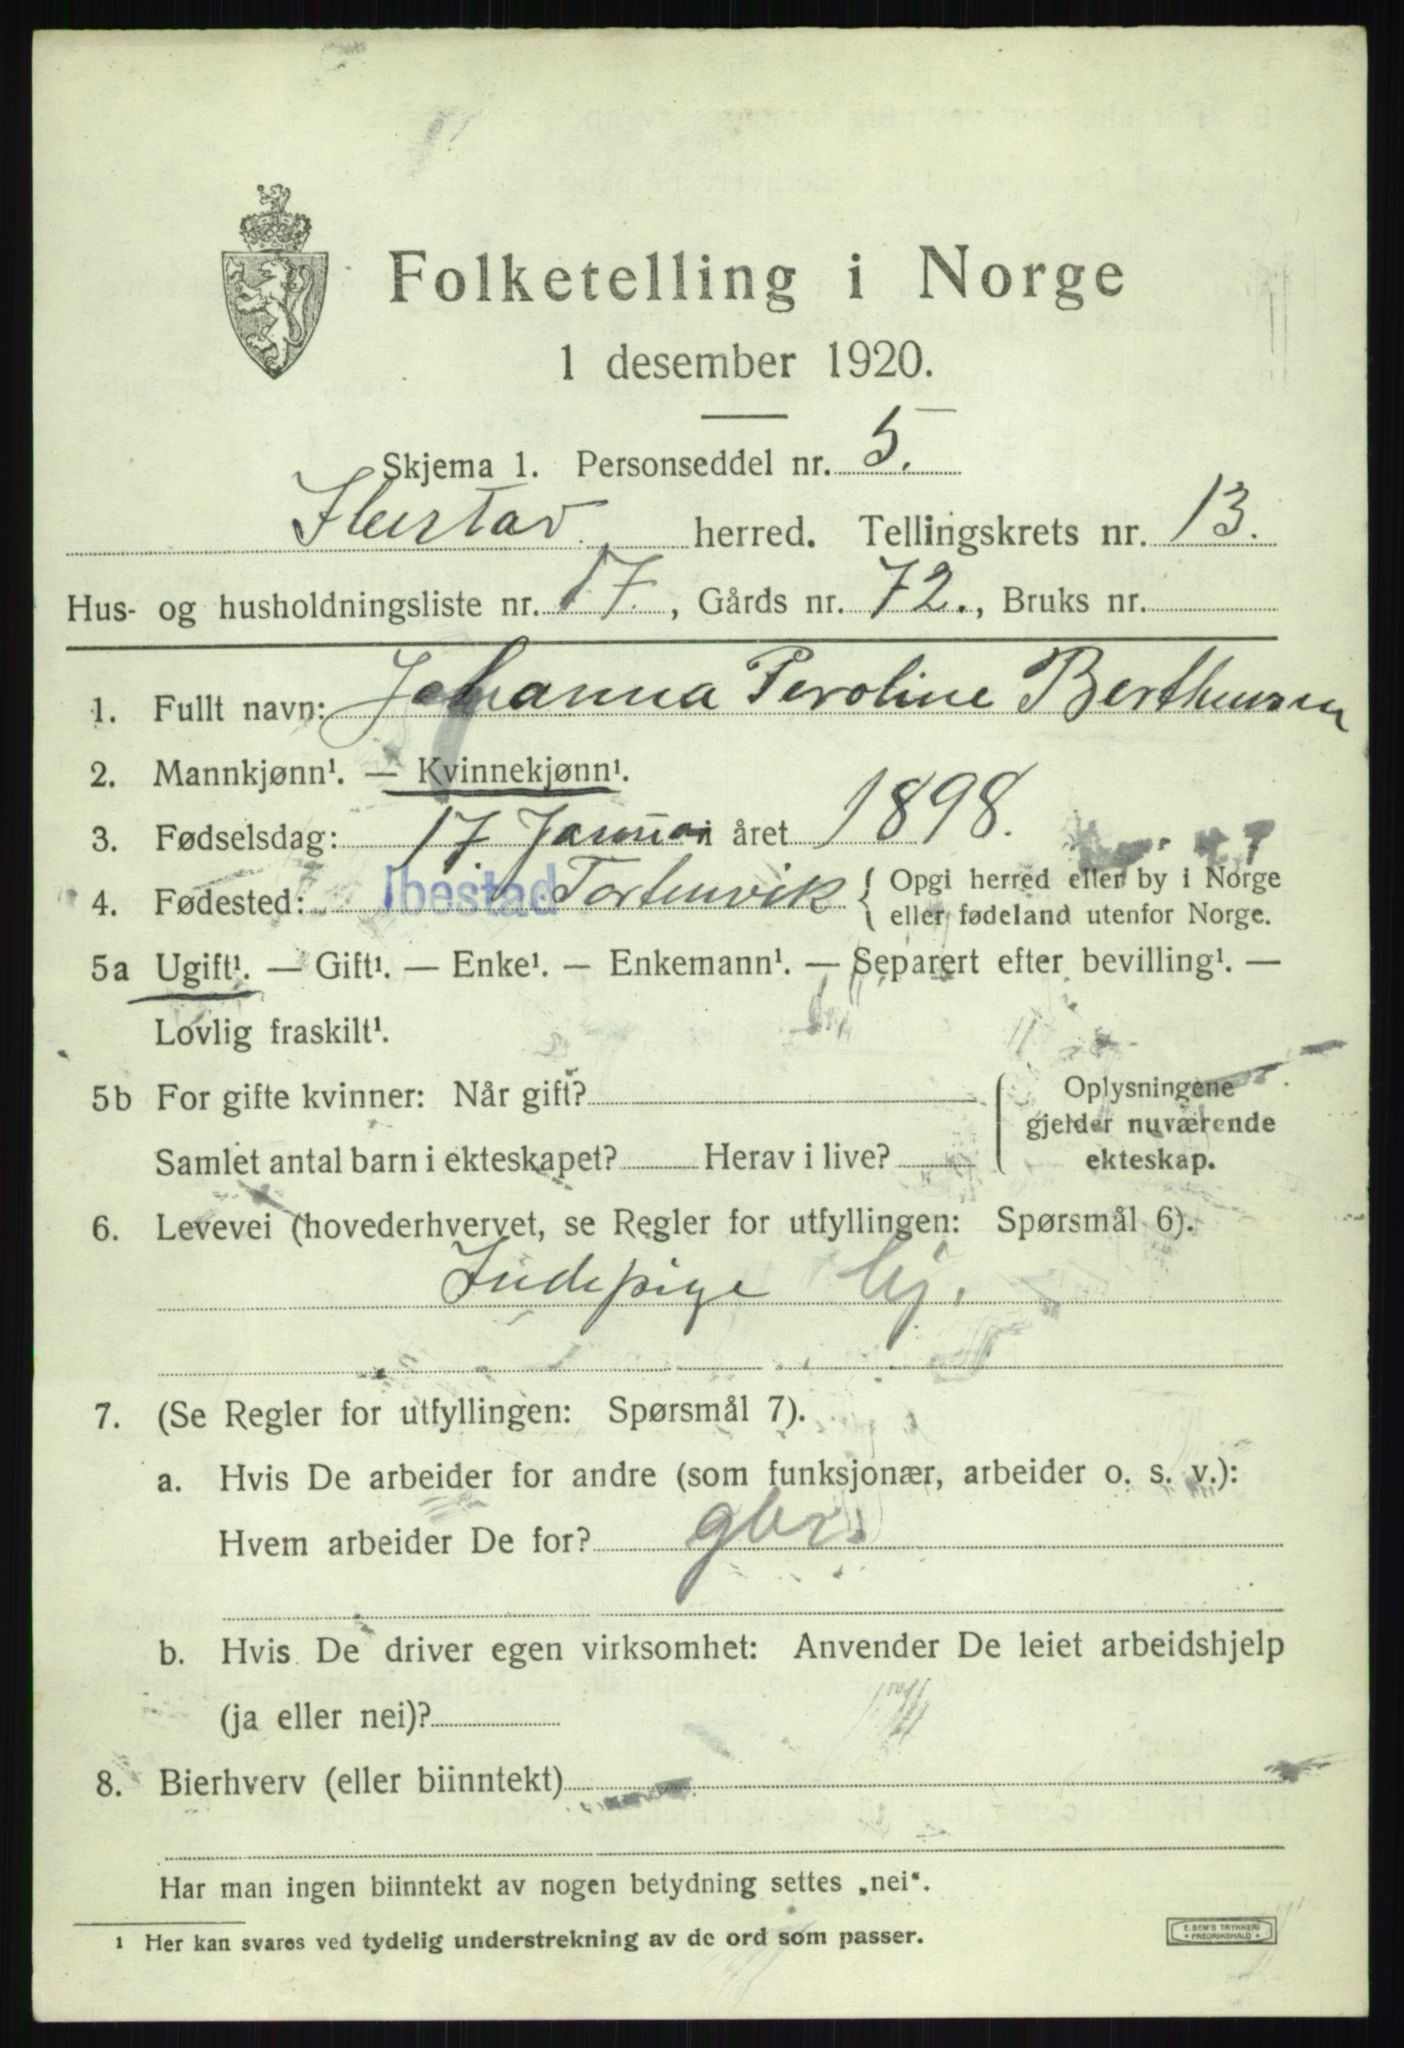 Folketelling i Norge
1 desember 1920.
Skjema 1. Personseddel nr. 5.
herred. Tellingskrets nr. 13.
Hus- og husholdningsliste nr. 17., Gårds nr. 72., Bruks nr.
1. Fullt navn: Johanna Peroline Berthensen
2. Mannkjønn¹. — Kvinnekjønn¹.
3. Fødselsdag: 17. Januar i året 1898.
4. Fødested: Ibestad Tortenvik { Opgi herred eller by i Norge
eller fødeland utenfor Norge.
5a Ugift¹. — Gift¹. — Enke¹. — Enkemann¹. — Separert efter bevilling¹. —
Lovlig fraskilt¹.
5b For gifte kvinner: Når gift? Oplysningene
gjelder nuværende
Samlet antal barn i ekteskapet? Herav i live? ekteskap.
6. Levevei (hovederhvervet, se Regler for utfyllingen: Spørsmål 6).
Indepige
7. (Se Regler for utfyllingen: Spørsmål 7).
a. Hvis De arbeider for andre (som funksjonær, arbeider o. s. v.):
Hvem arbeider De for? gbr.
b. Hvis De driver egen virksomhet: Anvender De leiet arbeidshjelp
(ja eller nei)?
8. Bierhverv (eller biinntekt)
Har man ingen biinntekt av nogen betydning settes „nei".
¹ Her kan svares ved tydelig understrekning av de ord som passer.
E. SEM'S TRYKKERI
* FREDRIKSHALD *